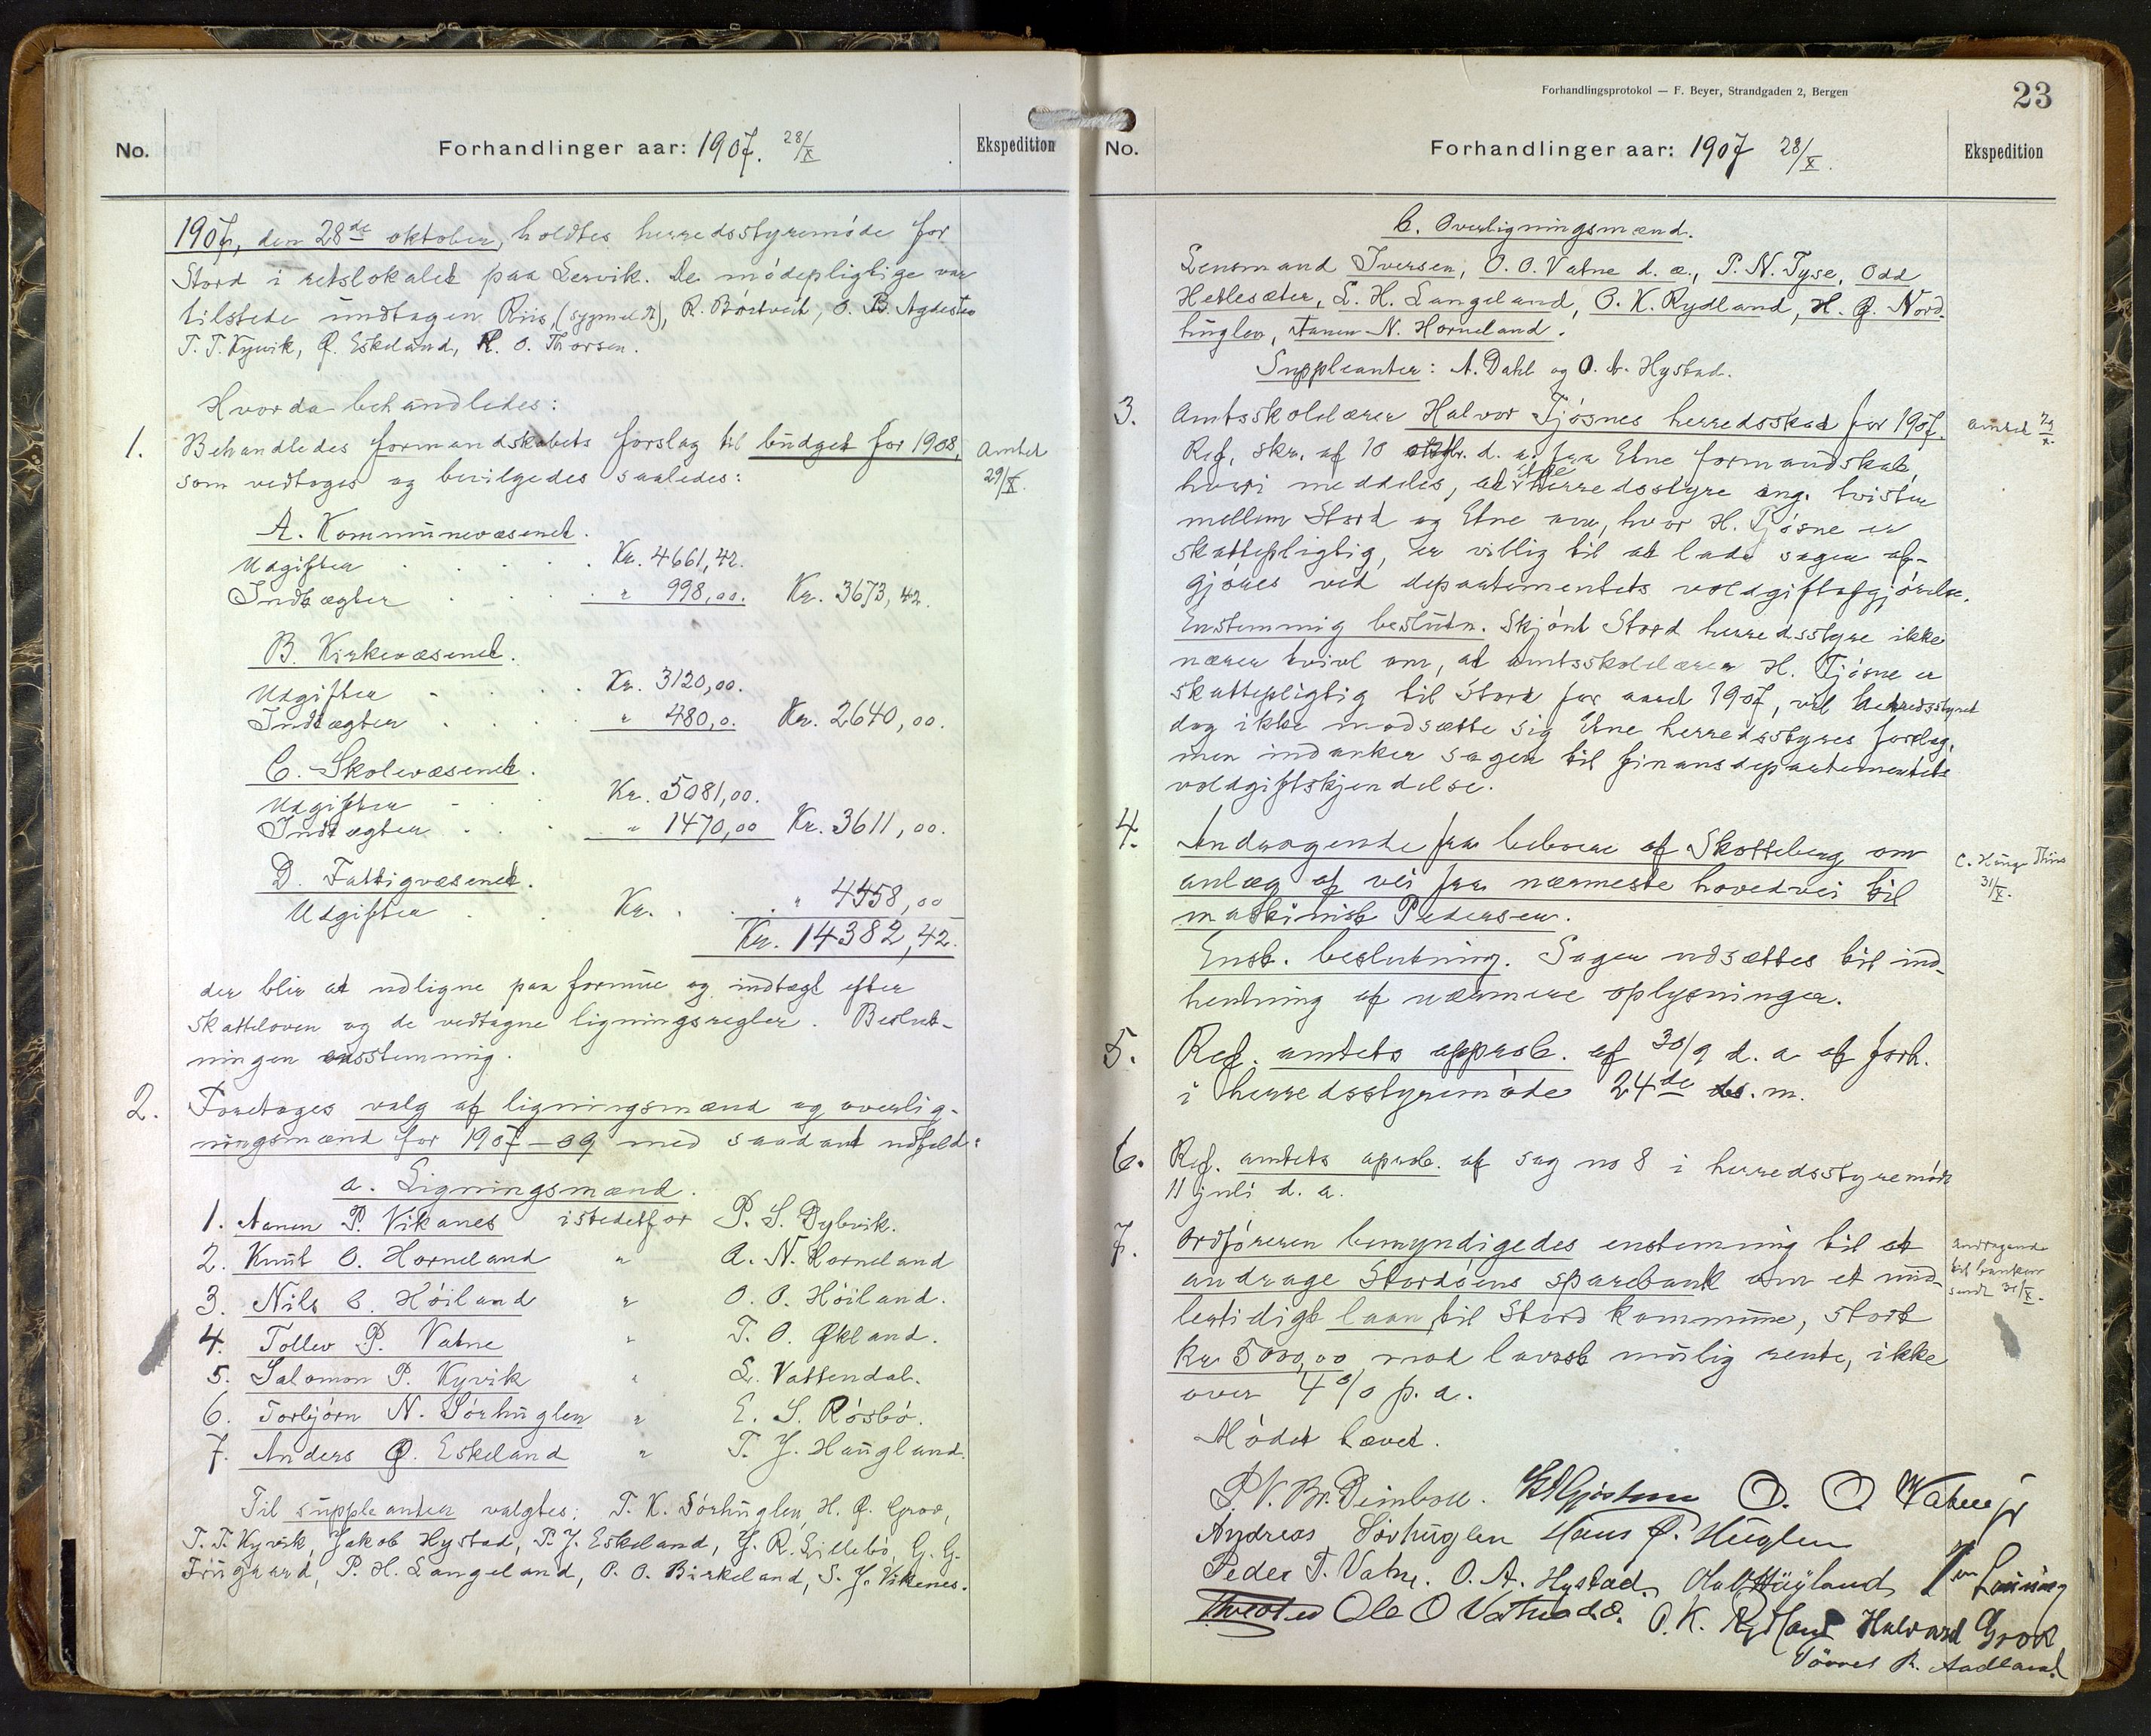 No. Forhandlinger aar: 1907. 28/X Ekspedition
1907, den 28de oktober, holdtes herredsstyremøde for
Stord i retslokalet paa Lervik. De mødepligtige var
tilstede undtagen Riis (sygmeldt), R. Børtveit, O. B. Agdesten
T. T. Kyvik, Q. Eskeland, R. O. Thorsen.
Hvorda behandledes:
1. Behandledes formandskabets forslag til budget for 1908, Amtet
som vedtoges og bevilgedes saaledes: 29/X.
A. Kommunevæsenet.
Udgifter Kr. 4661,42.
Indtægter " 998,00. Kr. 3673,42.
B. Kirkevæsenet.
Udgifter Kr. 3120,00.
Indtægter " 480,0. Kr. 2640,00.
C. Skolevæsenet.
Udgifter Kr. 5081,00.
Indtægter " 1470,00 Kr. 3611,00.
D. Fattigvæsenet.
Udgifter Kr. " 4458,00
Kr. 14382,42.
der blir at udligne paa formue og indtægt efter
skatteloven og de vedtagne ligningsregler. Beslut-
ningen ensstemmig.
2. Foretoges valg af ligningsmænd og overlig-
ningsmænd for 1907-09 med saadant udfald:
a. Ligningsmænd.
1. Aanen P. Vikanes istedetfor P. S. Dybvik.
2. Knut O. Horneland " A. N. Horneland
3. Nils O. Høiland " O. O. Høiland.
4. Tollev P. Vatne " T. O. Økland.
5. Salomon P. Kyvik " L. Vattendal.
6. Torbjørn N. Sørhuglen " E. S. Røsbø.
7. Anders Q. Eskeland " T. J. Haugland.
Til suppleanter valgtes: T. K. Sørhuglen, H. Q. Grov,
T. T. Kyvik, Jakob Hystad, T. J. Eskeland, J. R. Gillebø, G. G.
Frugaard, P. H. Langeland, P. O. Birkeland, S. J. Vikenes.
Forhandlingsprotokol — F. Beyer, Strandgaden 2, Bergen 23
No. Forhandlinger aar: 1907 28/X. Ekspedition
b. Overligningsmænd.
Lensmand Iversen, O. O. Vatne d. æ., P. N. Tyse, Odd
Hetlesæter, L. H. Langeland, O. K. Rydland, H. Q. Nord-
huglen, Aanen N. Horneland.
Suppleanter: A. Dahl og O. A. Hystad.
3. Amtsskolelærer Halvor Tjøsnes herredsskat for 1907. amtet 29/X.
Ref. skr. af 10 oktbr. d. a. fra Etne formandskab,
hvori meddeles, at Etne herredsstyre ang. tvisten
mellem Stord og Etne om, hvor H. Tjøsne er
skattepligtig, er villig til at lade sagen af-
gjøres ved departementets voldgiftafgjørelse.
Enstemmig beslutn. Skjønt Stord herredsstyre ikke
nærer tvivl om, at amtsskolelærer H. Tjøsne er
skattepligtig til Stord for aaret 1907, vil herredsstyret
dog ikke modsætte sig Etne herredsstyres forslag,
men indanker sagen til finansdepartementets
voldgiftskjendelse.
4. Andragende fra beboere af Skotteberg om
anlæg af vei fra nærmeste hovedvei til
maskinist Pedersen. 31/X.
Enst. beslutning. Sagen udsættes til ind-
hentning af nærmere oplysninger.
5. Ref. amtets approb. af 30/9 d. a. af forh.
i herredsstyremøde 24de ds. m.
6. Ref. amtets aprob. af sag no 8 i herredsstyremøde
11 juli d. a.
7. Ordføreren bemyndigedes enstemmig til at andragende
andrage Stordøens sparebank om et mid- til banken
lertidigt laan til Stord kommune, stort sendt 31/X.
kr. 5000,00 mod lavest mulig rente, ikke
over 4 % p. a.
Mødet hævet.
P. V. Br. Deimboll. O. O. Vatne jr
Andreas Sørhuglen Hans Q. Huglen
Peder T. Vatne. O. A. Hystad. Olav Høyland
Ole O Vatne d.æ. O. K. Rydland Halvard Grov
R. Aadland